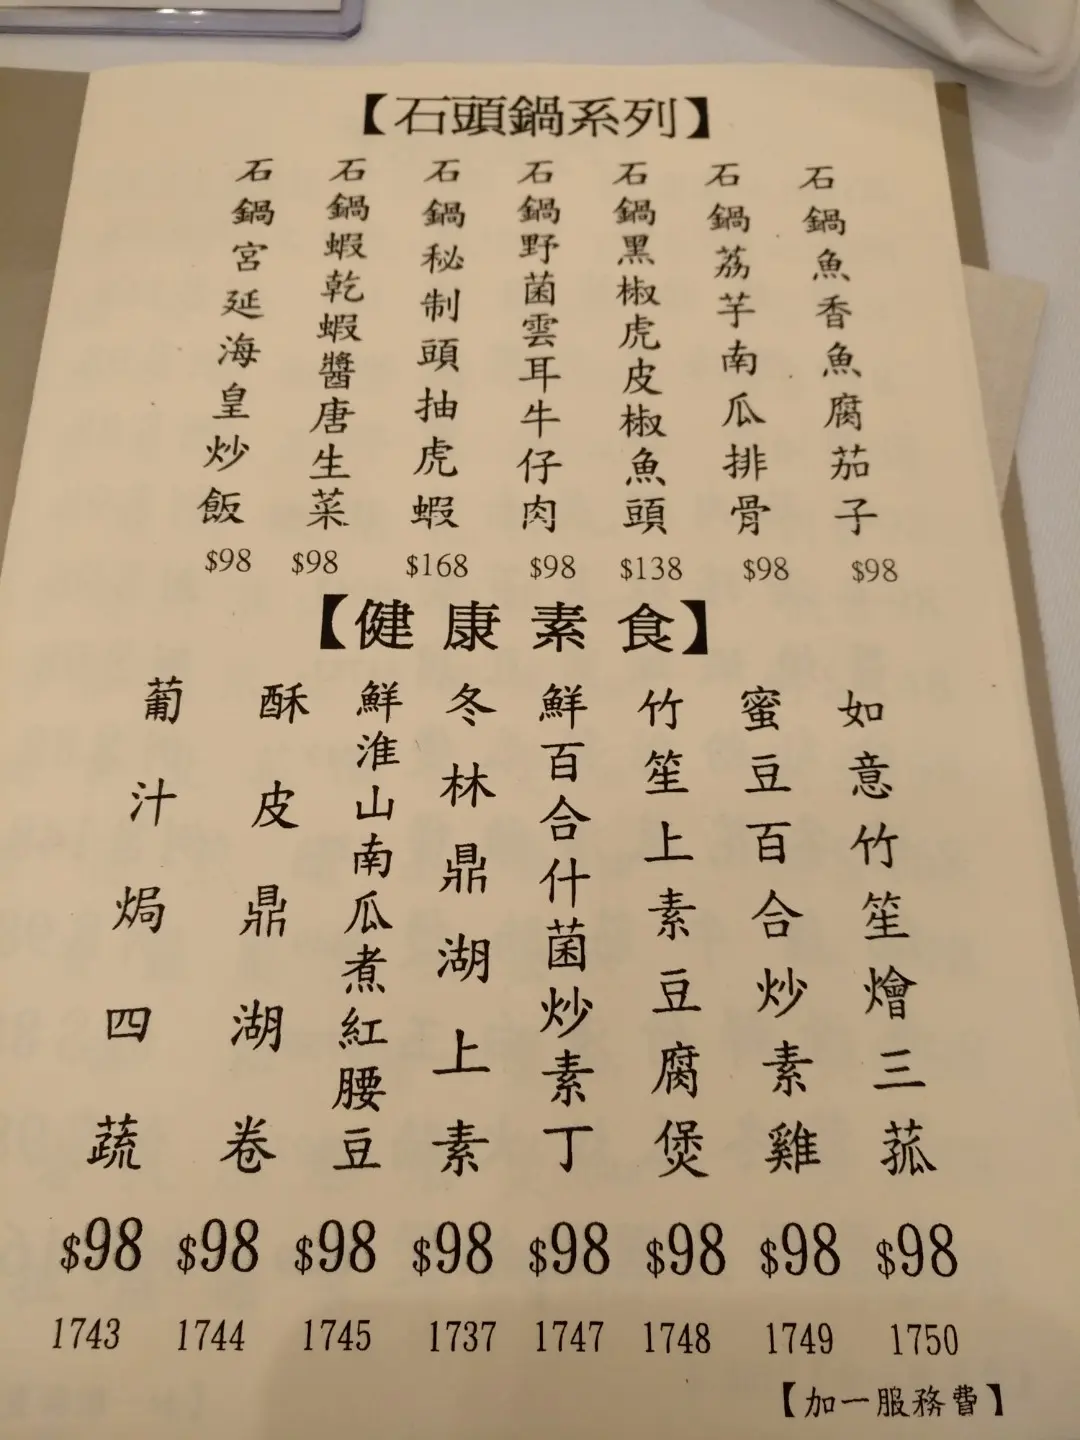 【石頭鍋系列】
石鍋魚香魚腐茄子
石鍋荔芋南瓜排骨
石鍋黑椒虎皮椒魚頭
石鍋野菌雲耳牛仔肉
石鍋秘制頭抽虎蝦
石鍋蝦乾蝦醬唐生菜
石鍋宮延海皇炒飯
$98 $98 $168 $98 $138 $98 $98
【健康素食】
如意竹笙燴三菰
蜜豆百合炒素雞
竹笙上素豆腐煲
鮮百合什菌炒素丁
冬林鼎湖上素
鮮淮山南瓜煮紅腰豆
酥皮鼎湖卷
葡汁焗四蔬
$98 $98 $98 $98 $98 $98 $98 $98
1743 1744 1745 1737 1747 1748 1749 1750
【加一服務費】